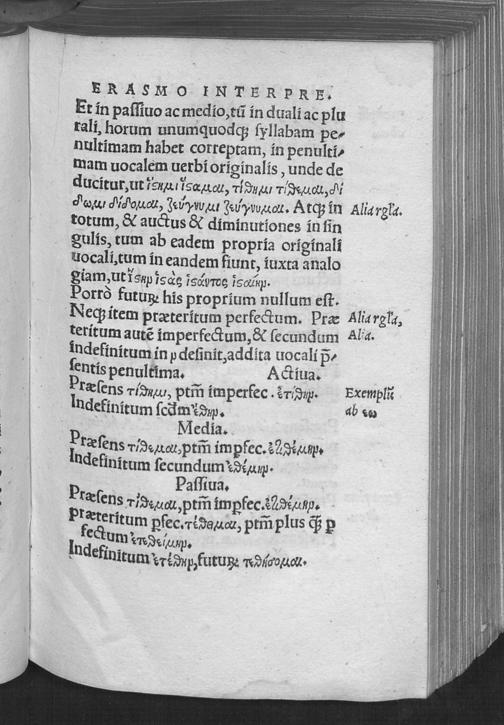 ERASMO INTERPRE.
Et in passiuo ac medio, tũ in duali ac plu
rali, horum unumquodq; syllabam pe-
nultimam habet correptam, in penulti-
mam uocalem uerbi originalis, unde de
ducitur, ut ἵσημι ἵσαμαι, τίθημι τίθεμαι, δί
δωμι δίδομαι, ζεύγνυμι ζεύγνυμαι. Atq; in
Alia rgľa.
totum, & auctus & diminutiones in sin
gulis, tum ab eadem propria originali
uocali, tum in eandem fiunt, iuxta analo
giam, ut ἵσημι ἱσὰς ἱσάντος ἱσαίην.
Porrò futurũ his proprium nullum est.
Neq; item præteritum perfectum. Præ
Alia rgľa,
teritum autẽ imperfectum, & secundum
Alia.
indefinitum in ν desinit, addita uocali p̃-
sentis penultima. Actiua.
Præsens τίθημι, ptm̃ imperfec. ἐτίθην.
Exemplũ
Indefinitum scďm ἔθην.
ab εω
Media.
Præsens τίθεμαι, ptm̃ imꝑfec. ἐτιθέμην.
Indefinitum secundum ἐθέμην.
Passiua.
Præsens τίθεμαι, ptm̃ imꝑfec. ἐτιθέμην.
præteritum ꝑfec. τέθεμαι, ptm̃ plus q̃ꝫ ꝑ
fectum ἐτεθείμην.
Indefinitum ἐτέθην, futurũ τεθήσομαι.